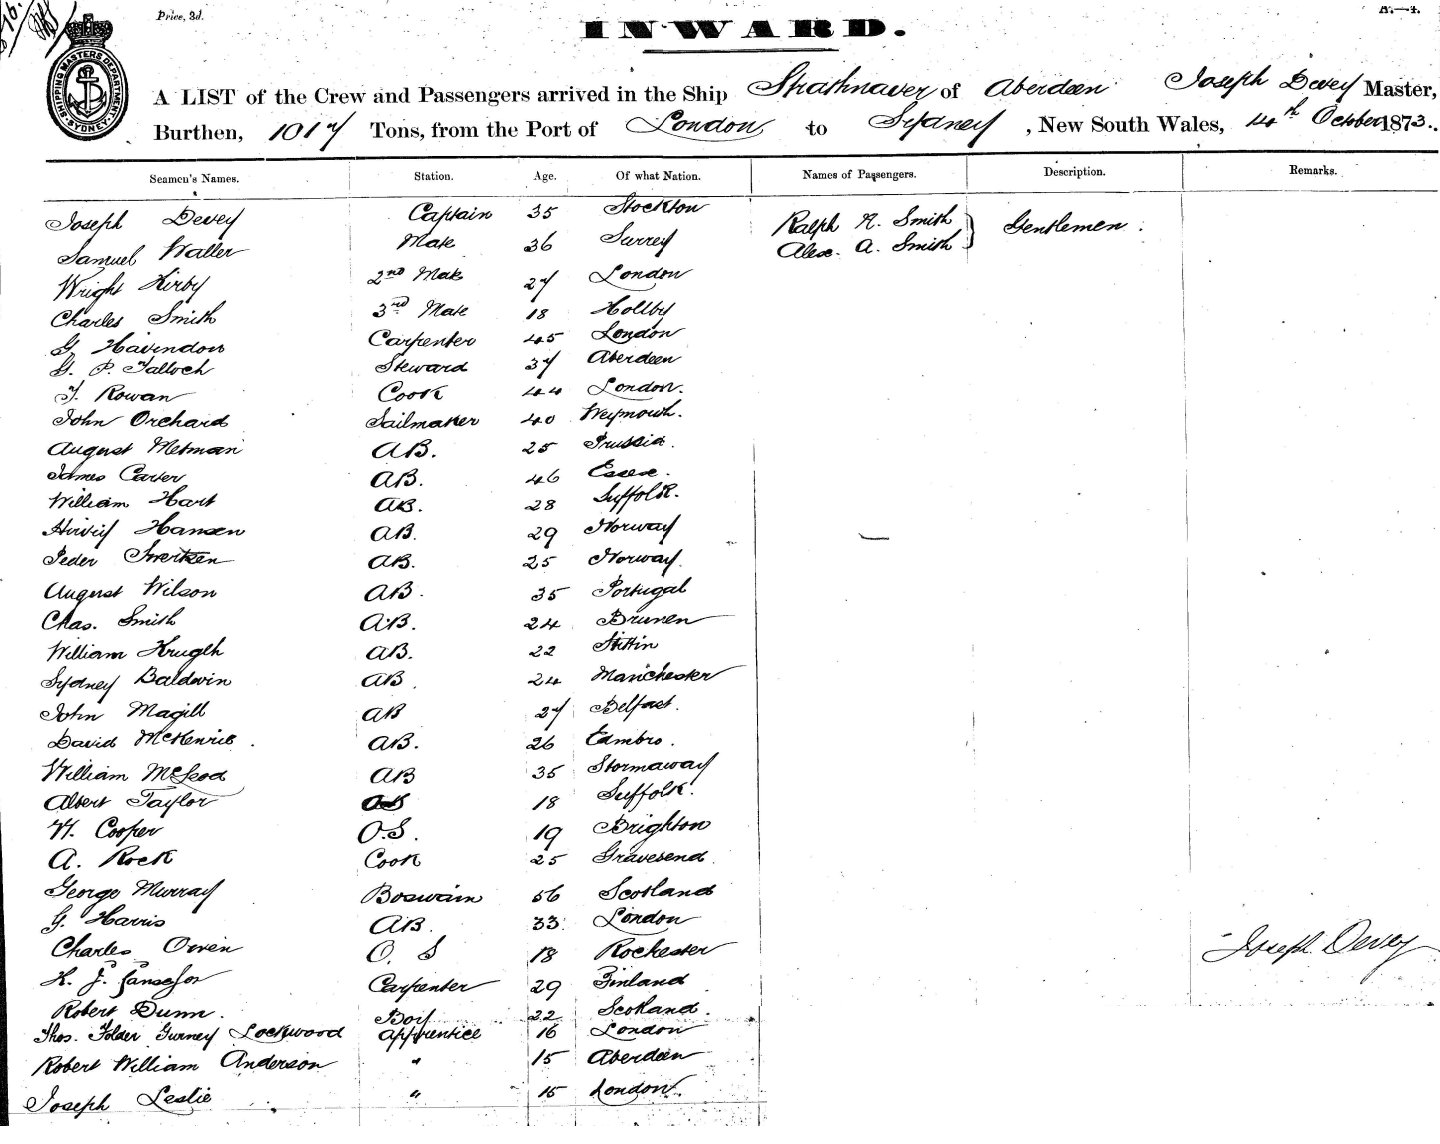 Price, 3d.
A.—4.
SHIPPING MASTERS DEPARTMENT SYDNEY
INWARD.
A LIST of the Crew and Passengers arrived in the Ship Strathnaver of Aberdeen Joseph Devey Master,
Burthen, 1017 Tons, from the Port of London to Sydney, New South Wales, 14th October 1873.
Seamen's Names. Station. Age. Of what Nation. Names of Passengers. Description. Remarks.
Joseph Devey Captain 35 Stockton Ralph R. Smith Gentlemen.
Samuel Waller Mate 36 Surrey Alex. A. Smith
Wright Kirby 2nd Mate 27 London
Charles Smith 3rd Mate 18 Holtby
G. Havindon Carpenter 45 London
G. P. Talloch Steward 37 Aberdeen
T. Rowan Cook 44 London.
John Orchard Sailmaker 40 Weymouth.
August Metman AB. 25 Prussia.
James Carter AB. 46 Essex.
William Hart AB. 28 Suffolk.
Hansen AB. 29 Norway
Peder AB. 25 Norway.
August Wilson AB. 35 Portugal
Chas. Smith AB. 24 Brunen
William Krugth AB. 22 Stittin
Sydney Baldwin AB. 24 Manchester
John Magill AB 27 Belfast.
David McKenrie. AB. 26 Edmbro.
William McLeod AB 35 Stornaway
Albert Taylor OS 18 Suffolk.
W. Cooper O.S. 19 Brighton
A. Rock Cook 25 Gravesend.
George Murray Boswain 56 Scotland
G. Harris AB. 33 London
Charles Owen O. S 18 Rochester
K. J. Carpenter 29 Finland
Robert Dunn. Boy 22 Scotland.
Thos. Folder Gurney Lockwood Apprentice 16 London
Robert William Anderson " 15 Aberdeen
Joseph Leslie " 15 London.
Joseph Devey